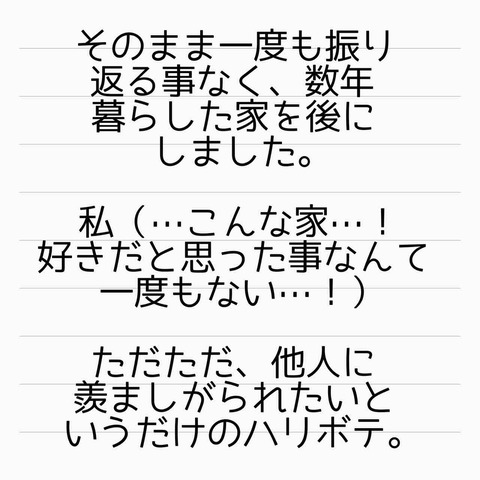 そのまま一度も振り
返る事なく、数年
暮らした家を後に
しました。
私（…こんな家…！
好きだと思った事なんて
一度もない…！）
ただただ、他人に
羨ましがられたいと
いうだけのハリボテ。